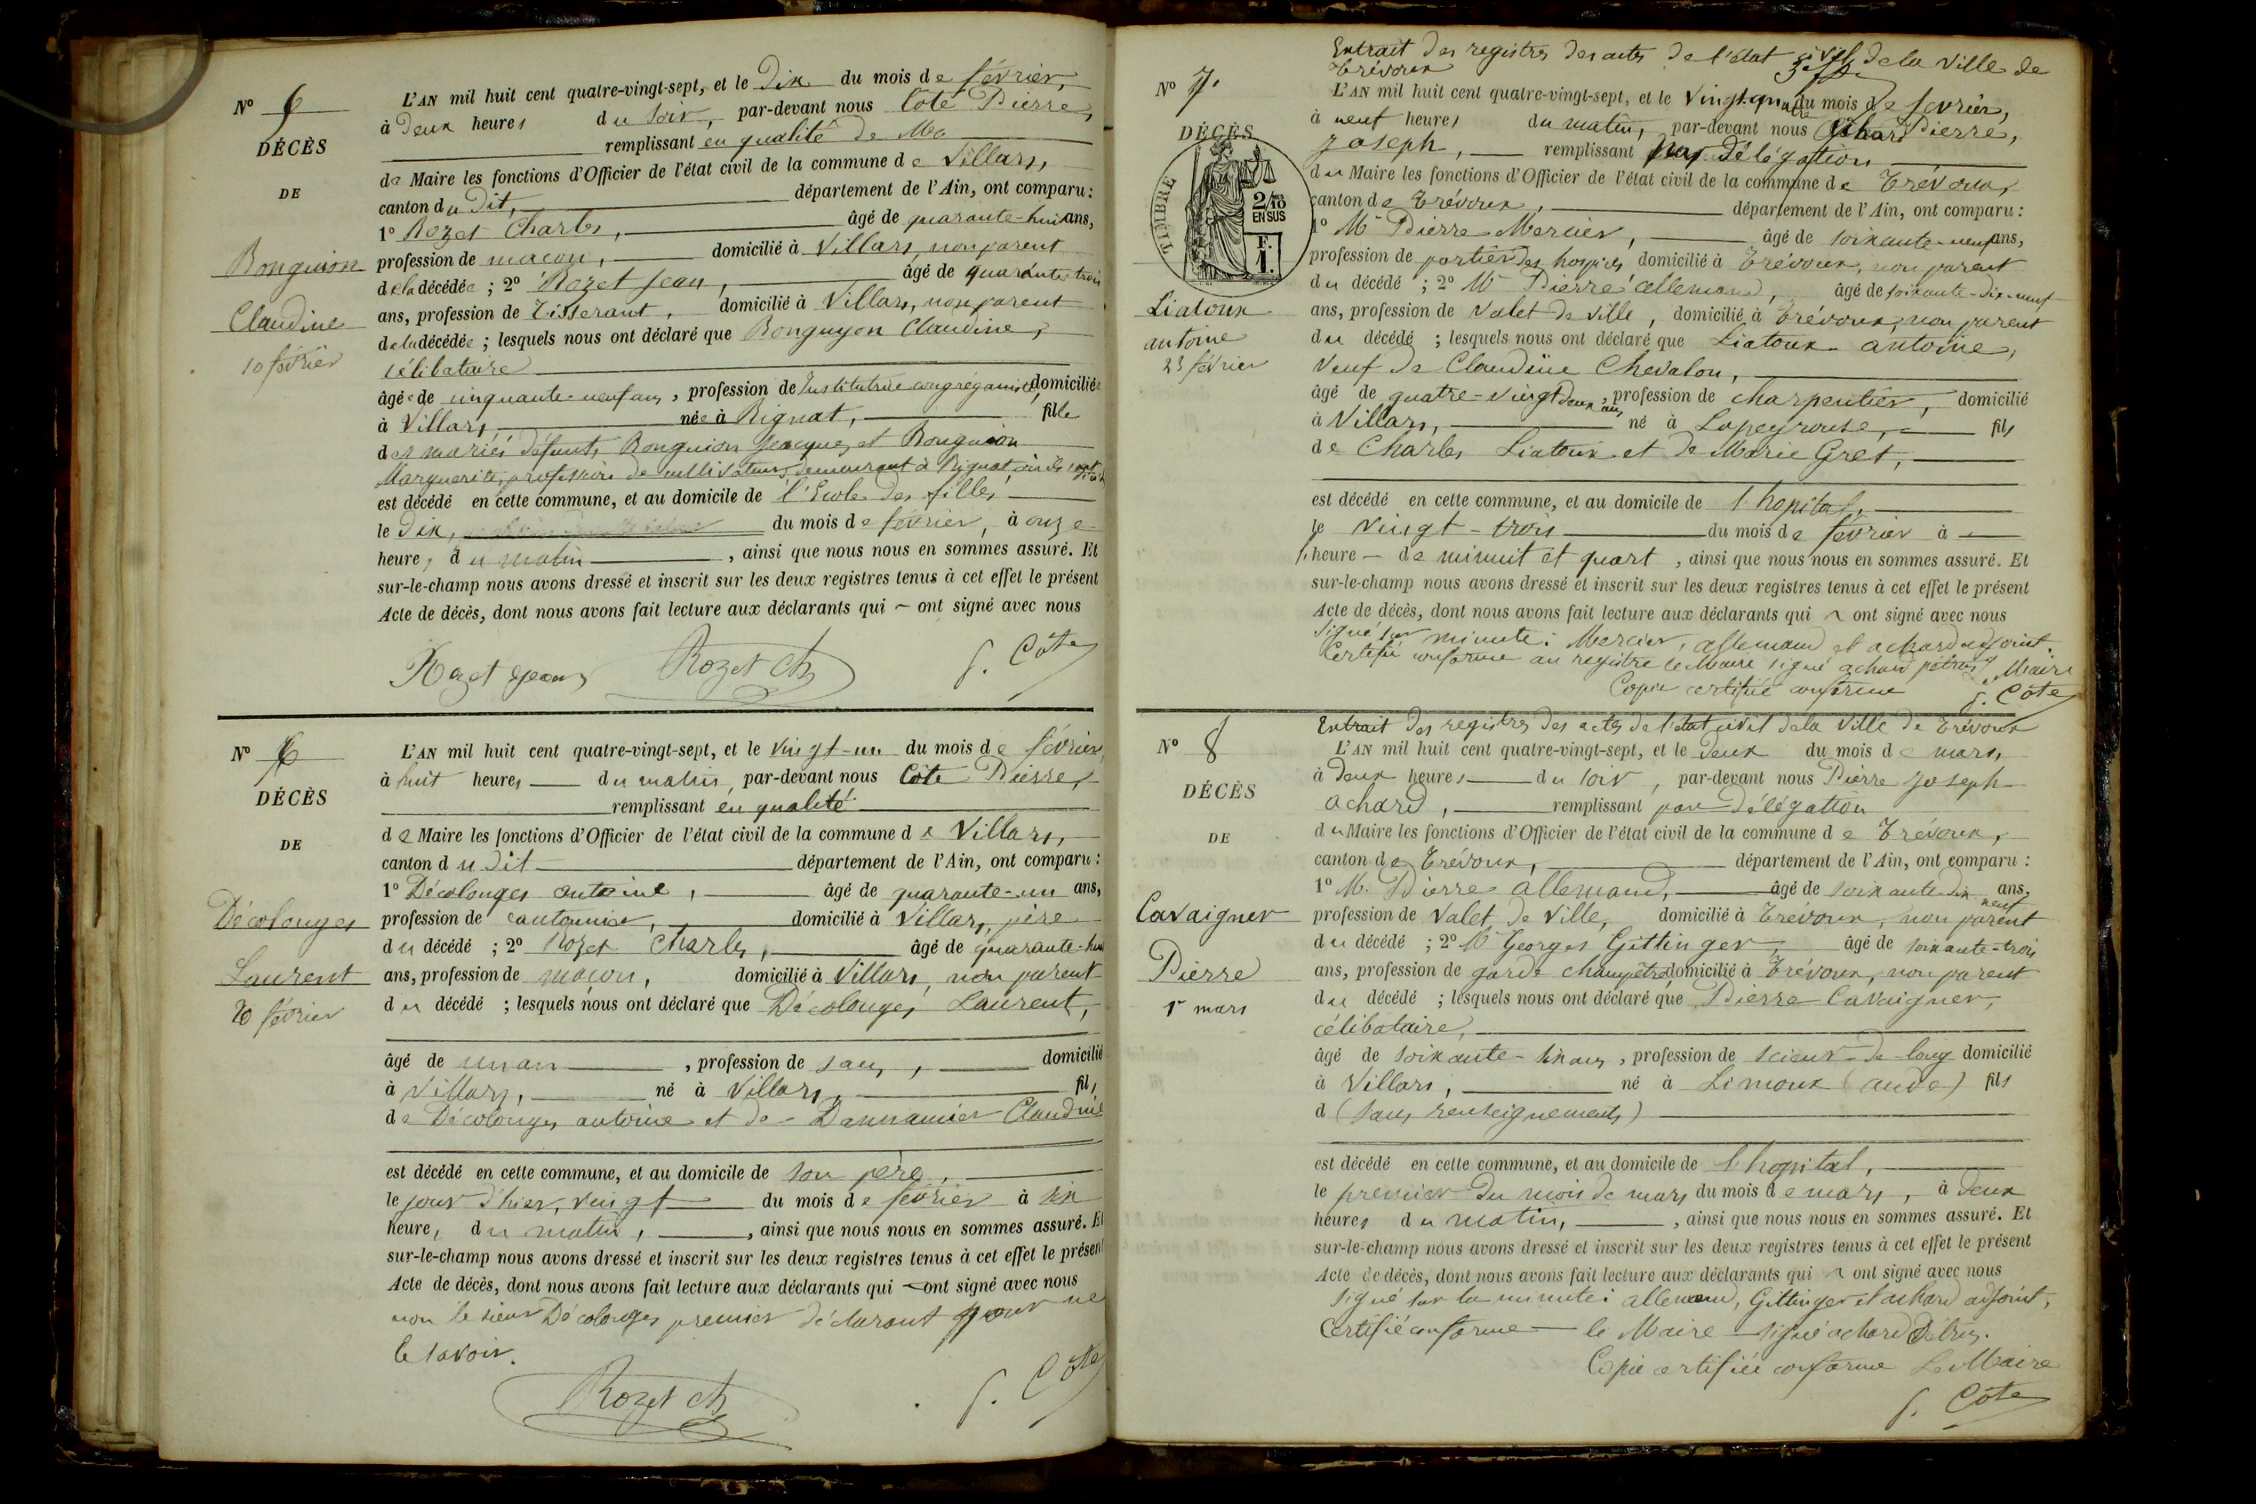 N° 5
DÉCÈS
DE
Bonguion
Claudine
10 février
L'AN mil huit cent quatre-vingt-sept, et le dix du mois de février,
à deux heures du soir, par-devant nous Côte Pierre,
remplissant en qualité de Ma
de Maire les fonctions d'Officier de l'état civil de la commune de Villars,
canton du dit, département de l'Ain, ont comparu :
1° Rozet Charles, âgé de quarante-huit ans,
profession de maçon, domicilié à Villars, non parent
de la décédée ; 2° Rozet Jean, âgé de quarante trois
ans, profession de Tisserant, domicilié à Villars, non parent
de la décédée ; lesquels nous ont déclaré que Bonguyon Claudine,
célibataire
âgée de cinquante-neuf ans, profession de Institutrice congréganiste, domiciliée
à Villars, née à Rignat, fille
des mariés défunts Bonguion Jacques et Bonguion
Marguerite, profession de cultivateurs, demeurant à Rignat, où ils sont
est décédé en cette commune, et au domicile de l'École des filles
le dix, du mois de février, à onze
heures du matin, ainsi que nous nous en sommes assuré. Et
sur-le-champ nous avons dressé et inscrit sur les deux registres tenus à cet effet le présent
Acte de décès, dont nous avons fait lecture aux déclarants qui ~ ont signé avec nous
Rozet Jean Rozet Ch P. Côte
N° 6
DÉCÈS
DE
Décolonges
Laurent
20 février
L'AN mil huit cent quatre-vingt-sept, et le vingt-un du mois de février,
à huit heures du matin, par-devant nous Côte Pierre,
remplissant en qualité
de Maire les fonctions d'Officier de l'état civil de la commune de Villars,
canton du dit département de l'Ain, ont comparu :
1° Décolonges antoine, âgé de quarante-un ans,
profession de cantonnier, domicilié à Villars, père
du décédé ; 2° Rozet Charles, âgé de quarante-huit
ans, profession de maçon, domicilié à Villars, non parent
du décédé ; lesquels nous ont déclaré que Décolonges Laurent,
âgé de un an, profession de sans, domicilié
à Villars, né à Villars, fils
de Décolonges antoine et de Dannamier Claudine
est décédé en cette commune, et au domicile de son père,
le jour d'hier, vingt du mois de février à six
heures du matin, ainsi que nous nous en sommes assuré. Et
sur-le-champ nous avons dressé et inscrit sur les deux registres tenus à cet effet le présent
Acte de décès, dont nous avons fait lecture aux déclarants qui ont signé avec nous
non le sieur Décolonges premier déclarant pour ne
le savoir.
Rozet ch P. Côte
Extrait des registres des actes de l'état civil de la Ville de
Trévoux
N° 7
DÉCÈS
TIMBRE
2/10 EN SUS
F. 1.
Liatoux
antoine
23 février
L'AN mil huit cent quatre-vingt-sept, et le vingt-quatre du mois de février,
à neuf heures du matin, par-devant nous Achard Pierre,
Joseph, remplissant par délégation
du Maire les fonctions d'Officier de l'état civil de la commune de Trévoux
canton de Trévoux, département de l'Ain, ont comparu :
1° Mr Pierre Mercier, âgé de soixante-neuf ans,
profession de portier des hospices domicilié à Trévoux, non parent
du décédé ; 2° Mr Pierre allemand, âgé de soixante-dix-neuf
ans, profession de Valet de ville, domicilié à Trévoux, non parent
du décédé ; lesquels nous ont déclaré que Liatoux antoine,
Veuf de Claudine Chevalon,
âgé de quatre-vingt deux ans, profession de charpentier, domicilié
à Villars, né à Lapeyrouse, fils
de Charles Liatoux et de Marie Gret,
est décédé en cette commune, et au domicile de l'hopital,
le vingt-trois du mois de février à
l'heure de minuit et quart, ainsi que nous nous en sommes assuré. Et
sur-le-champ nous avons dressé et inscrit sur les deux registres tenus à cet effet le présent
Acte de décès, dont nous avons fait lecture aux déclarants qui ~ ont signé avec nous
signé sur minute : Mercier, allemand et achard adjoint.
Certifié conforme au registre le Maire signé achard
Copie certifié conforme Maire
P. Côte
Extrait des registres des actes de l'état civil de la Ville de Trévoux
N° 8
DÉCÈS
DE
Cavaigner
Pierre
1r mars
L'AN mil huit cent quatre-vingt-sept, et le deux du mois de mars,
à deux heures du soir, par-devant nous Pierre Joseph
achard, remplissant par délégation
du Maire les fonctions d'Officier de l'état civil de la commune de Trévoux,
canton de Trévoux, département de l'Ain, ont comparu :
1° M. Pierre allemand, âgé de soixante dix neuf ans,
profession de Valet de Ville, domicilié à Trévoux, non parent
du décédé ; 2° Mr Georges Gittinger, âgé de soixante-trois
ans, profession de garde champêtre domicilié à Trévoux, non parent
du décédé ; lesquels nous ont déclaré que Pierre Cavaigner,
célibataire,
âgé de soixante-six ans, profession de scieur-de-long domicilié
à Villars, né à Limoux (aude) fils
d (sans renseignements)
est décédé en cette commune, et au domicile de l'hopital,
le premier du mois de mars du mois de mars, à deux
heures du matin, ainsi que nous nous en sommes assuré. Et
sur-le-champ nous avons dressé et inscrit sur les deux registres tenus à cet effet le présent
Acte de décès, dont nous avons fait lecture aux déclarants qui ~ ont signé avec nous
signé sur la minute : allemand, Gittinger et achard adjoint,
Certifié conforme le Maire signé achard
Copie certifiée conforme Le Maire
P. Côte